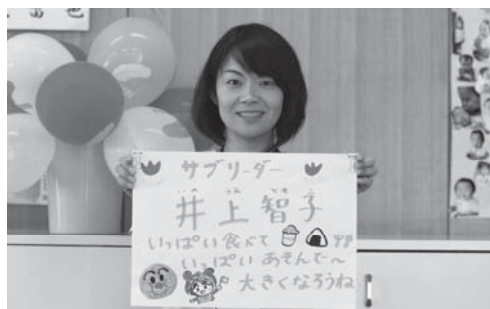 サブリーダー
いの うえ とも こ
井上智子
いっぱい食べて
いっぱいあそんで〜
大きくなろうね